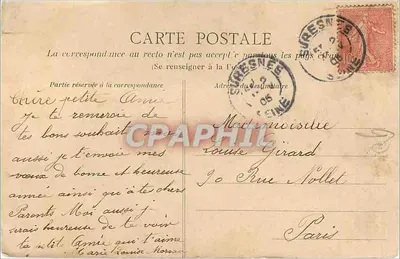 CARTE POSTALE
La correspondance au recto n'est pas acceptée par tous les pays
(Se renseigner à la
Partie réservée à la correspondance
Adresse du destinataire
SURESNES
SEINE
SURESNES
05
SEINE
Chère petite Amie
Je te remercie de
tes bons souhaits
aussi je t'envoie mes
vœux de bonne et heureuse
année ainsi qu'à tes chers
Parents Moi aussi je
serais heureuse de te voir
Ta petite Amie qui t'aime
Marie Louise
Mademoiselle
Louise Girard
90 Rue Nollet
Paris
CPAPHIL